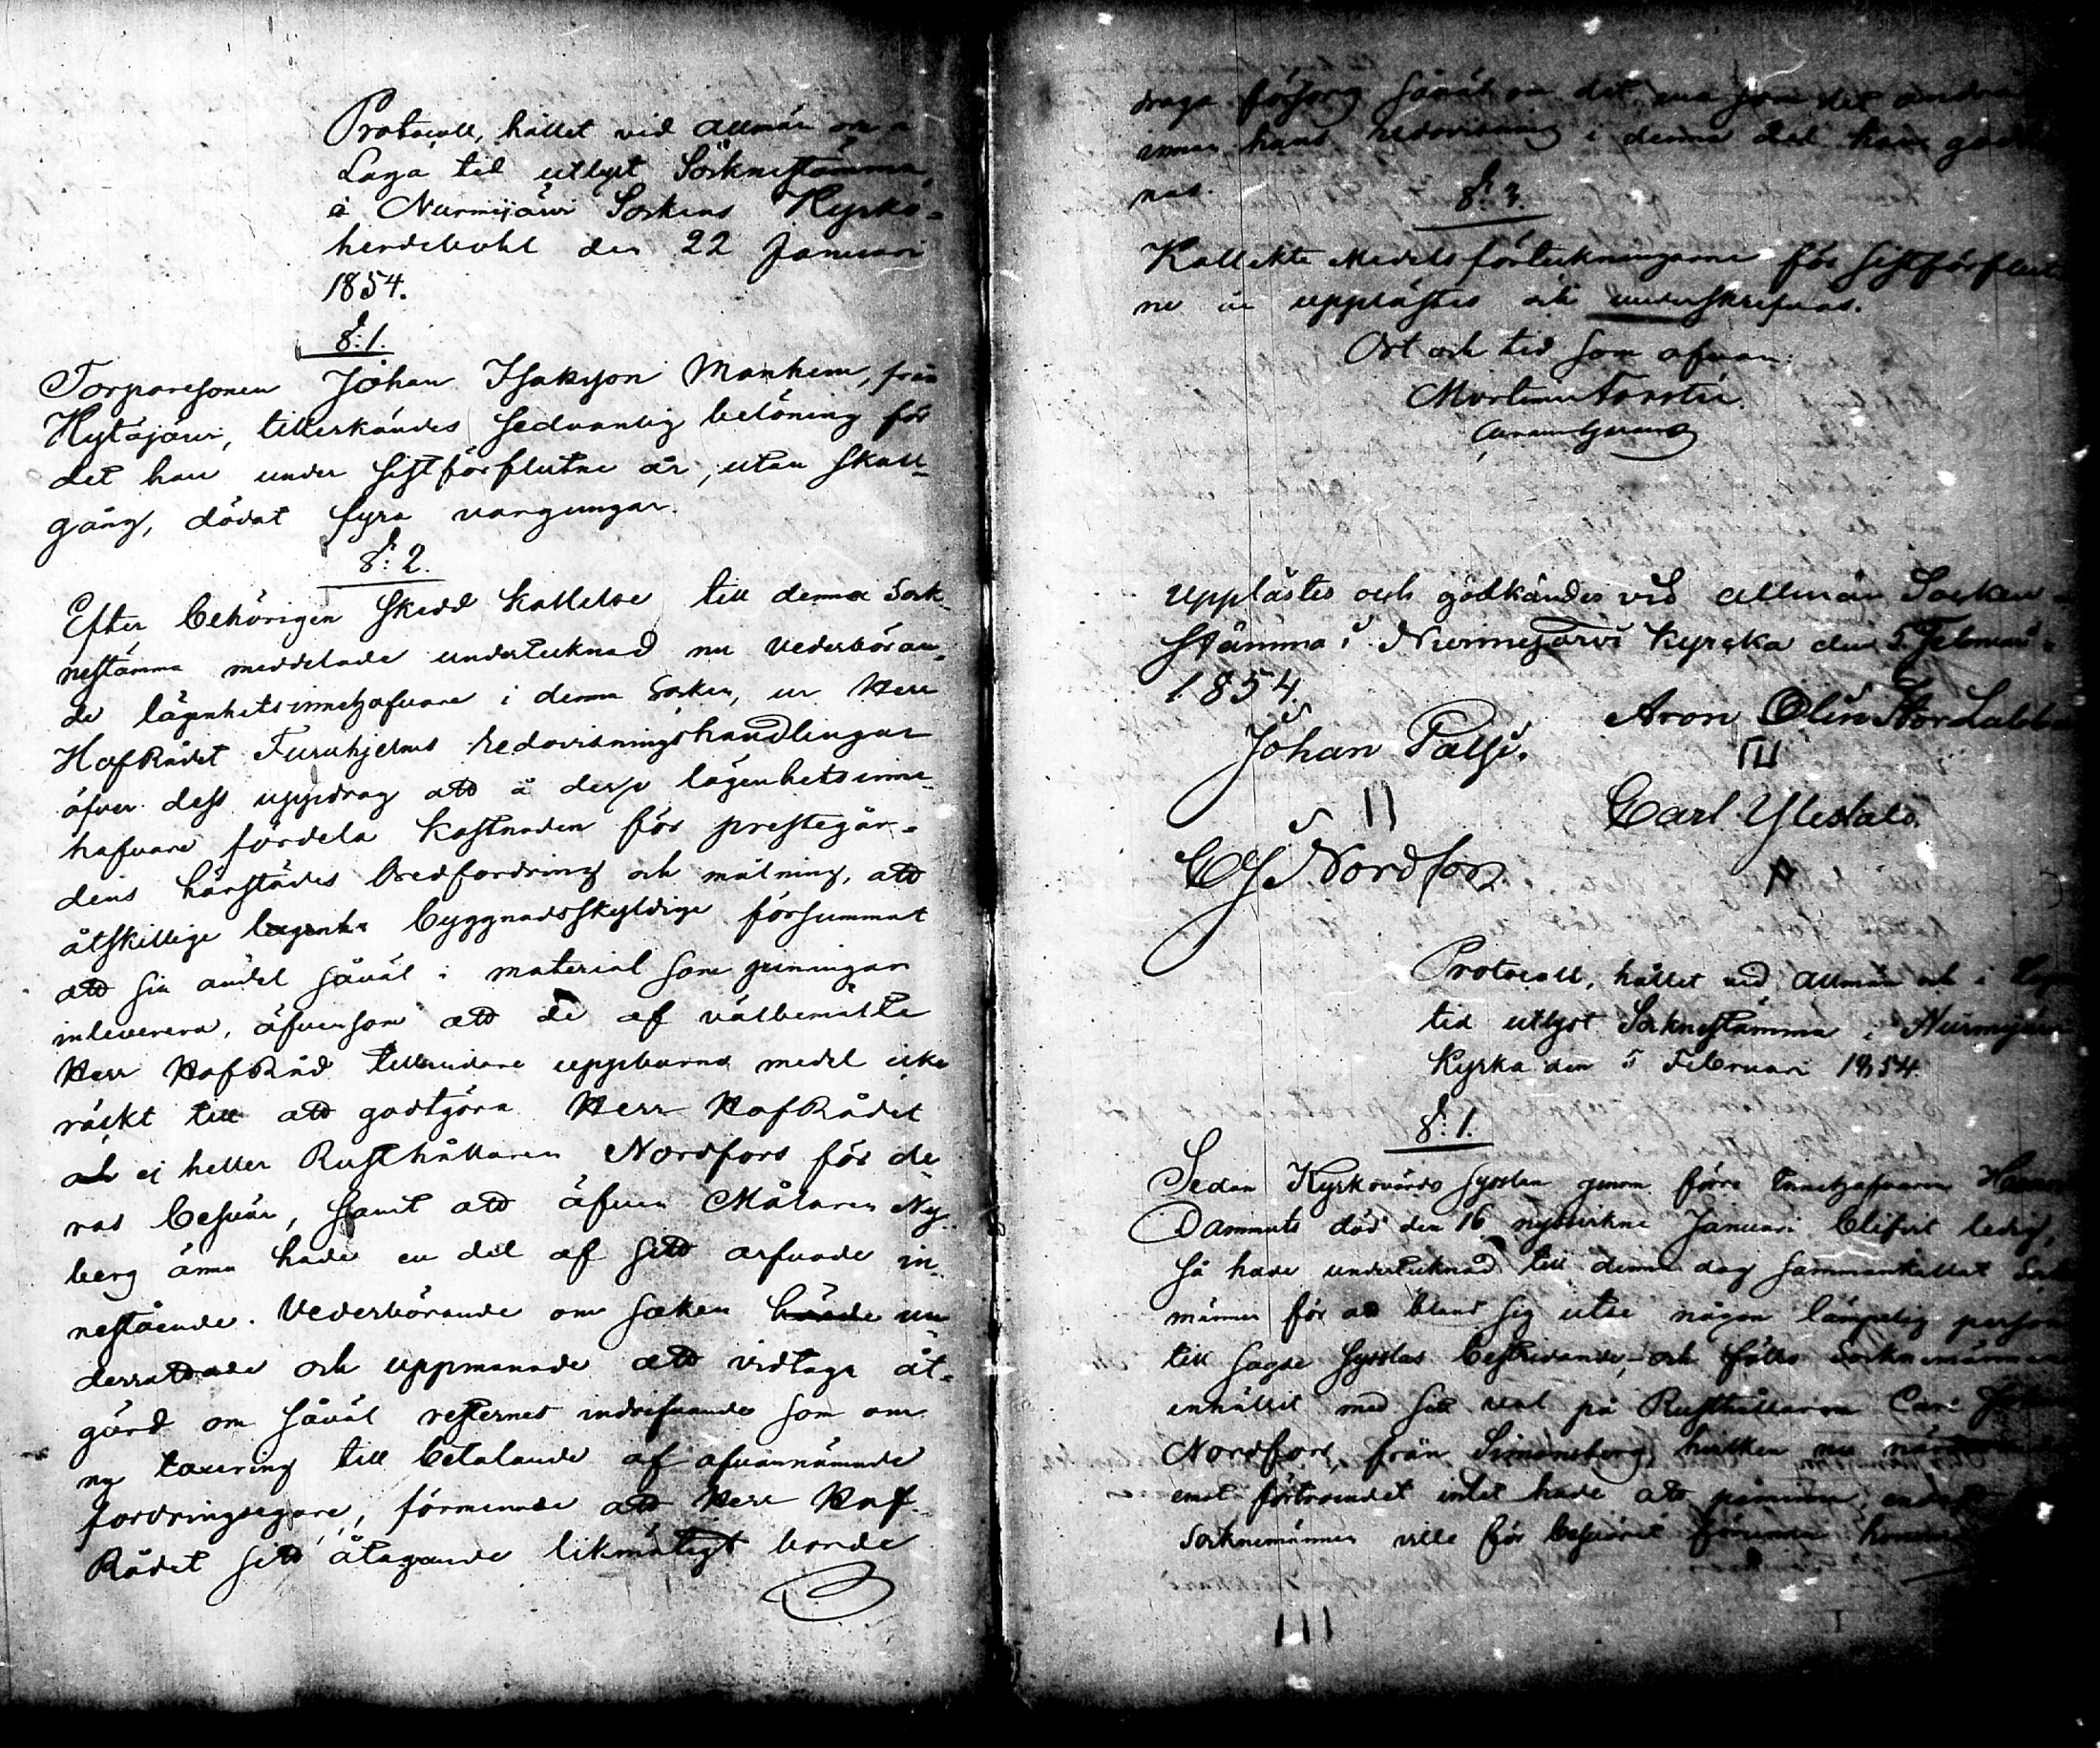 Protocoll, hållet vid allmän och i
Laga tid utlyst Sockenstämma,
å Nurmijärvi Sockens Kyrko-
herdebohl den 22 Januari
1854.
§: 1.
Torparesonen Johan Isaksson Manhem, från
Hytäjärvi, tillerkändes sedvanlig belöning för
det han under sistförflutne år, utan skall-
gång, dödat fyra vargungar.
§: 2.
Efter behörigen skedd kallelse till denna Sock-
nestämma meddelade undertecknad nu vederböran-
de lägenhetsinnehafvare i denna Socken, ur Herr
HofRådet Furuhjelms redovisningshandlingar
öfver dess uppdrag att å dessa lägenhetsinne-
hafvare fördela kostnaden för prestegår-
dens härstädes bredfordring och målning, att
åtskillige byggnadsskyldige försummat
att sin andel såväl i material som penningar
inleverera, äfvensom att de af välbemälte
Herr HofRåd tillsvidare uppburna medel icke
räckt till att godtgöra Herr HofRådet
och ej heller Rusthållaren Nordfors för de-
ras besvär, samt att äfven Målaren Ny-
berg ännu hade en del af sitt arfvode in-
nestående. Vederbörande om saken un-
derrattade och uppmanade att vidtaga åt-
gärd om såväl resternes indrifvande som om
ny taxering till betalande af ofvannämnde
fordringsegare, förmenade att Herr Hof-
Rådet sitt åtagande likmätigt borde
draga försorg såväl om det ena som det andra
innan hans redovisning i denna del kan godkän
nas.
§: 3.
Kollekte Medels förteckningarne för sistförflut
ne år upplästes och underskrefvos.
Ort och tid som ofvan:
Upplästes och godkändes vid allmän Socken-
stämma i Nurmejärvi kyrcka den 5 Februari
1854.
Johan Palsi.
Aron Olin Stor Labba
Carl Ylestalo.
CJ Nordfors
Protocoll, hållet vid allmän och i Laga
tid utlyst Socknestämma i Nurmijärvi
Kyrka den 5 Februari 1854.
§: 1.
Sedan Kyrkovärds sysslan genom förre Innehafvaren
Dammerts död den 16 nystvikne Januari blifvit ledig,
så hade undertecknad till denna dag sammankallat Sockne
männen för att bland sig utse någon lämpelig person
till sagde sysslas bestridande, och föllo Socknemännen
enhälligt med sitt val på Rusthållaren Carl Johan
Nordfors, från Simonsberg, hvilken nu närvarande
emot förtroendet intet hade att påminna,
Socknemännen ville för besväret förunna honom